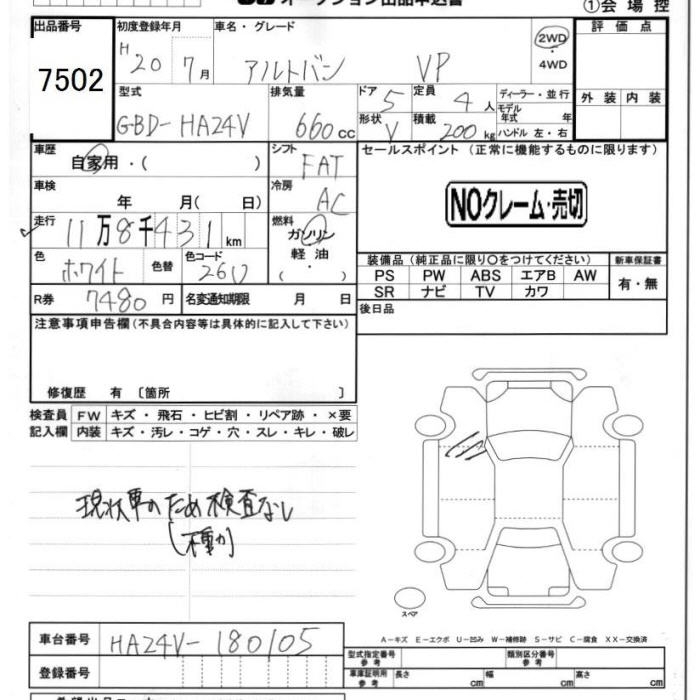 オークション出品申込書
①会場控
出品番号
7502
初度登録年月
H 20 7月
車名・グレード
アルトバン VP
2WD
・
4WD
評価点
外装 内装
型式
GBD-HA24V
排気量
660cc
ドア 5
形状 V
定員 4人
積載 200kg
ディーラー・並行
モデル年式 年
ハンドル 左・右
車歴
自家用・( )
シフト
FAT
セールスポイント (正常に機能するものに限ります)
NOクレーム・売切
車検
年 月( 日)
冷房
AC
走行
11万8千431km
燃料
ガソリン
軽油
( ・ )
色
ホワイト
色替
色コード
26U
装備品 (純正品に限り○をつけてください)
PS PW ABS エアB AW
SR ナビ TV カワ
新車保証書
有・無
R券 7480円
名変通知期限 月 日
後日品
注意事項申告欄(不具合内容等は具体的に記入して下さい)
修復歴 有 〔箇所 〕
検査員
記入欄
FW キズ・飛石・ヒビ割・リペア跡・×要
内装 キズ・汚レ・コゲ・穴・スレ・キレ・破レ
現状車のため検査なし
(不動)
スペア
A-キズ E-エクボ U-凹み W-補修跡 S-サビ C-腐食 XX-交換済
車台番号
HA24V-180105
登録番号
型式指定番号
参考
類別区分番号
参考
車庫証明用
参考
長さ cm
幅 cm
高さ cm